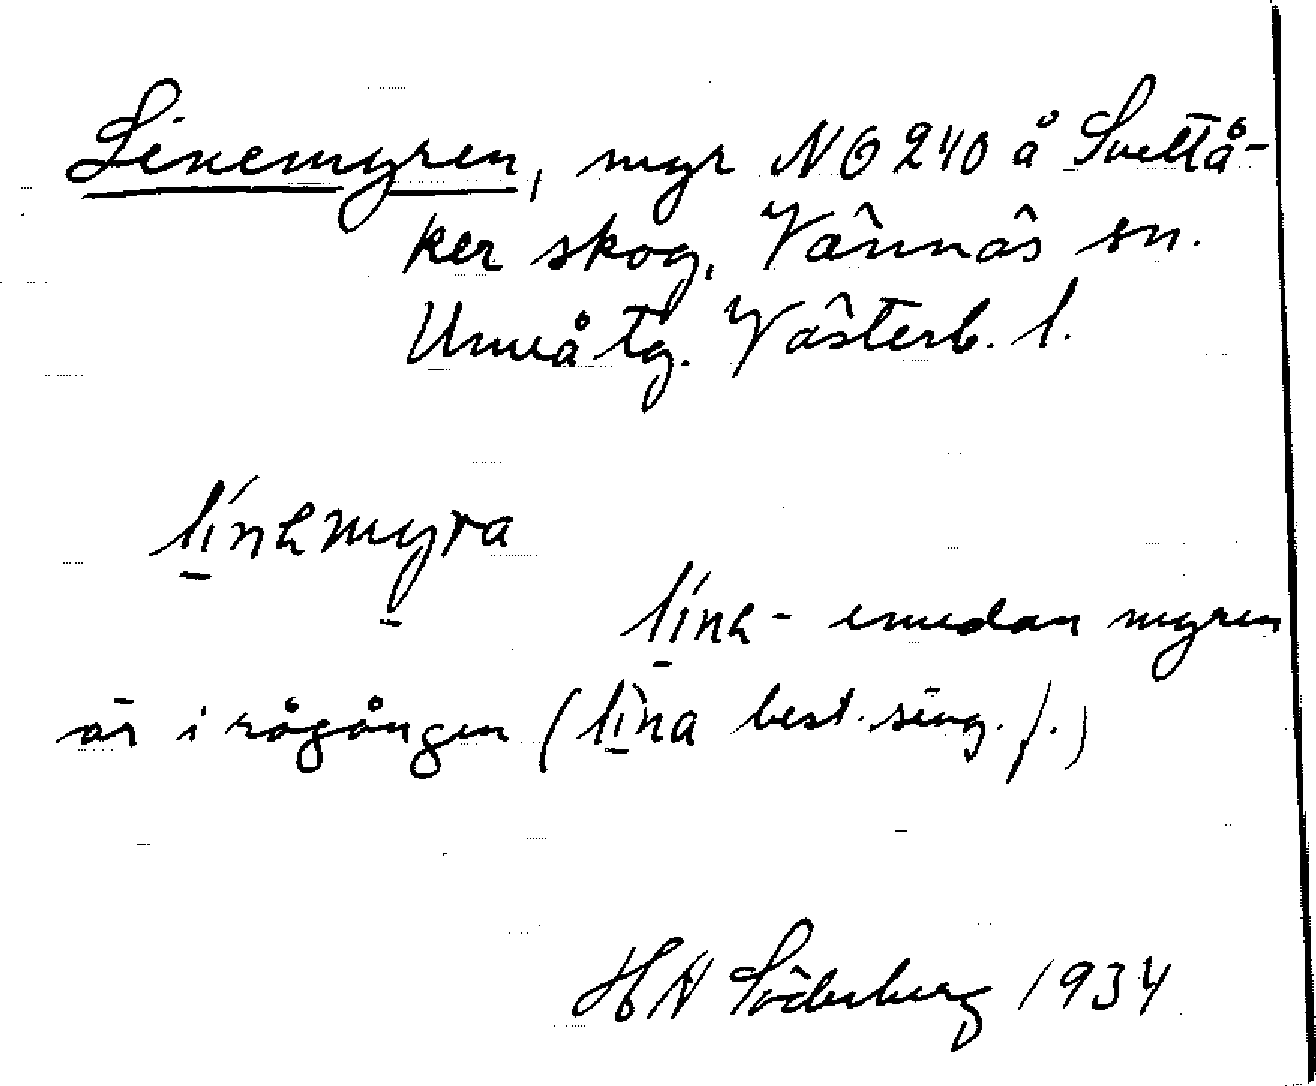 Linemyren, myr NO 240 å Svettå-
ker skog, Vännäs sn.
Umeå tg. Västerb. l.
línɛmyra
línɛ- emedan myren
är i rågången (lìna best. sing. f.)
H N Söderberg 1934